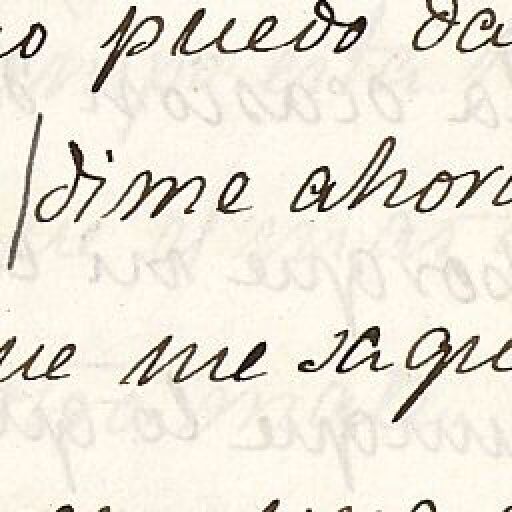 no puedo da
dime ahora
ue me saque